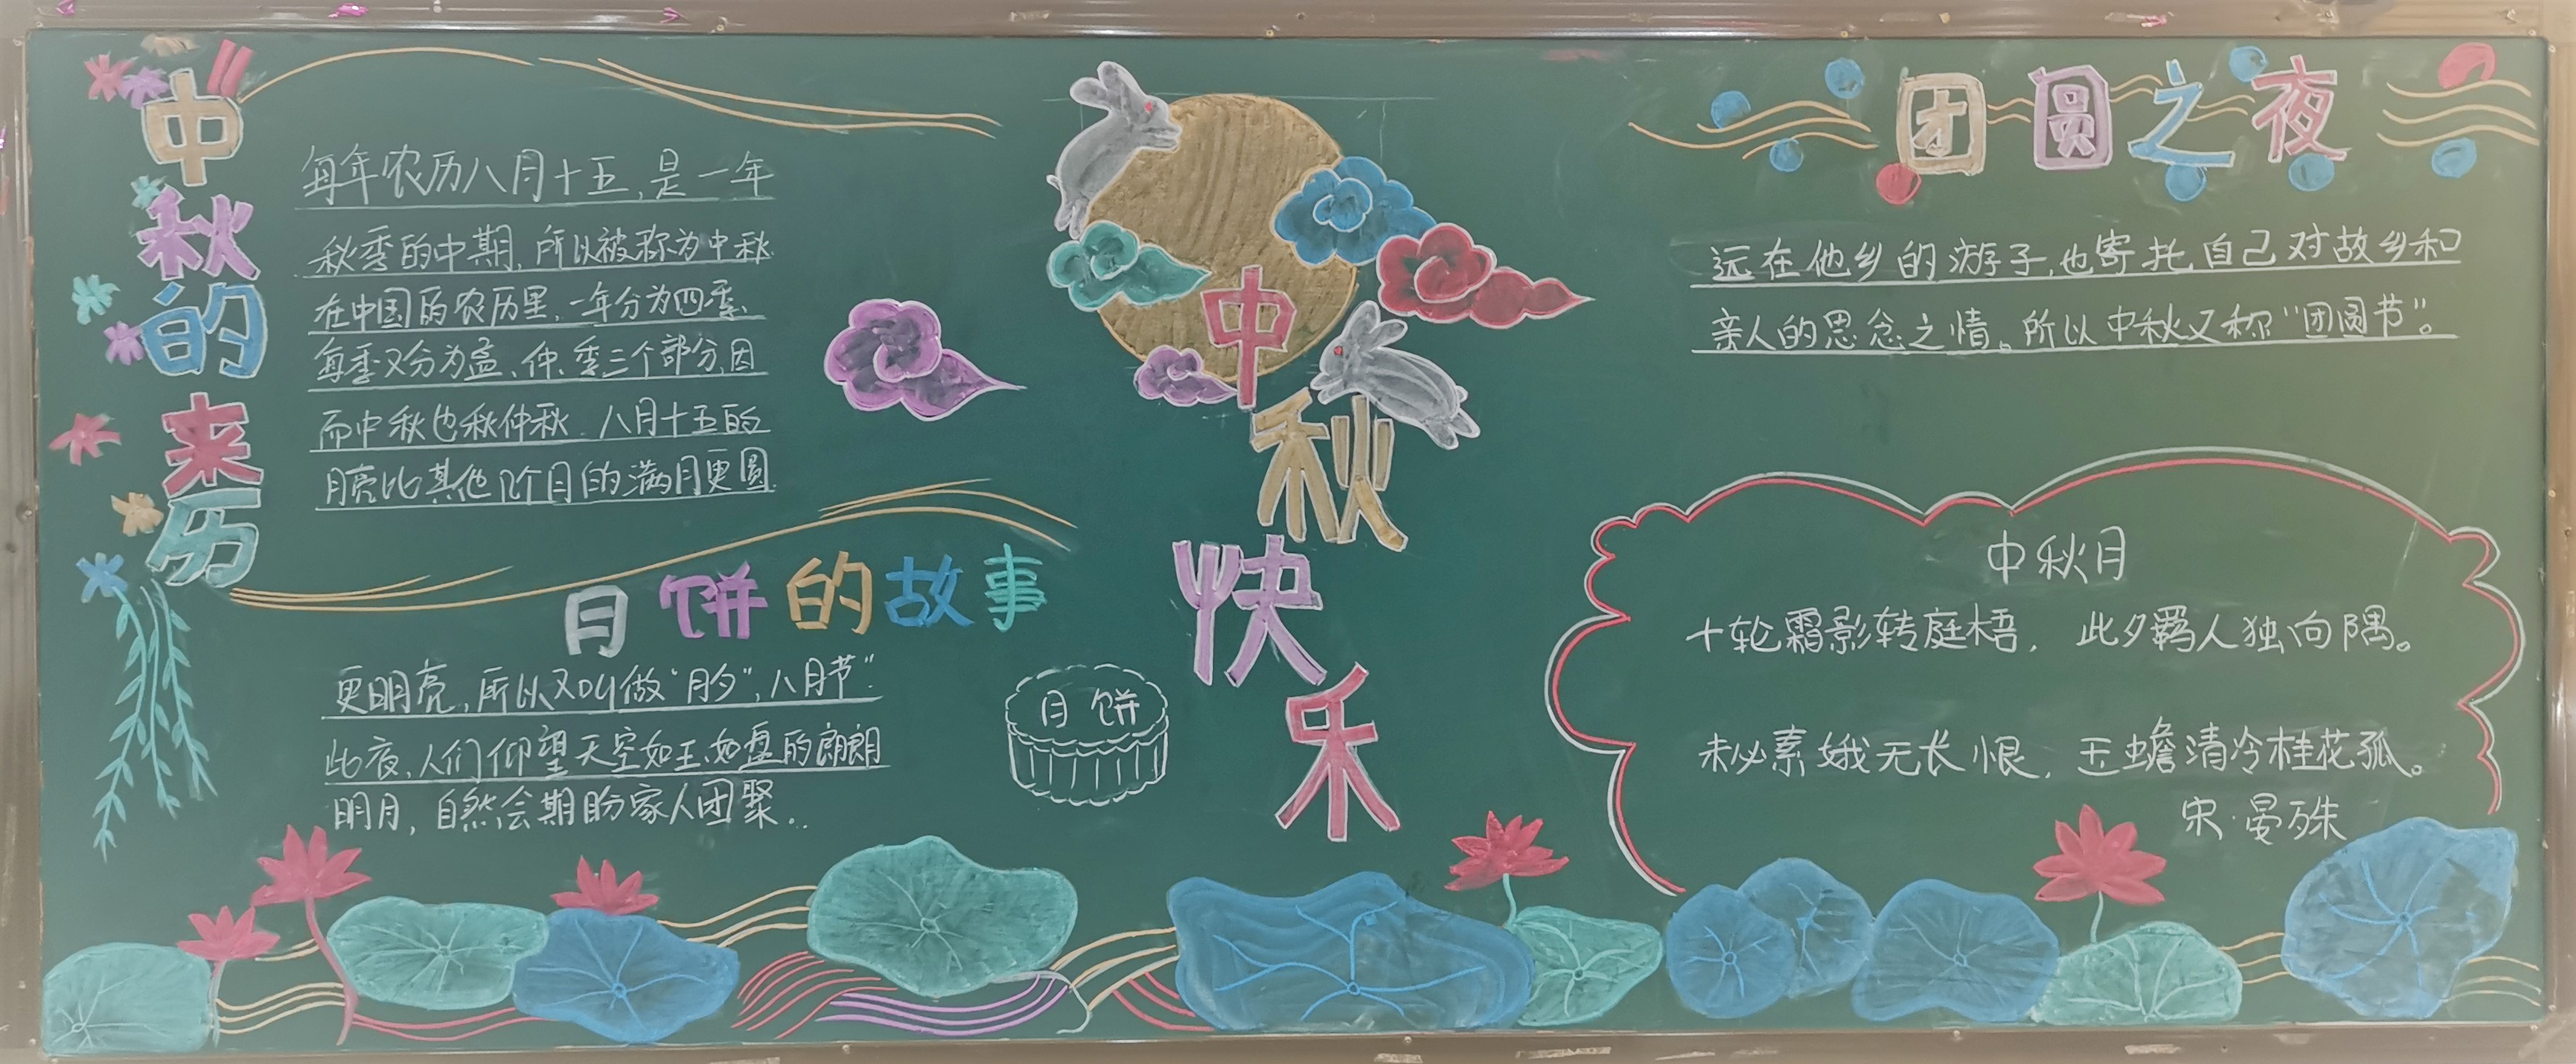 中秋的来历
每年农历八月十五,是一年
秋季的中期,所以被称为中秋.
在中国的农历里,一年分为四季,
每季又分为孟、仲、季三个部分,因
而中秋也秋仲秋.八月十五的
月亮比其他几个月的满月更圆
月饼的故事
更明亮,所以又叫做“月夕”,八月节”
此夜,人们仰望天空如玉如盘的朗朗
明月,自然会期盼家人团聚..
月饼
中秋快乐
团圆之夜
远在他乡的游子,也寄托自己对故乡和
亲人的思念之情。所以中秋又称“团圆节”。
中秋月
十轮霜影转庭梧,此夕羁人独向隅。
未必素娥无长恨,玉蟾清冷桂花孤。
宋·晏殊